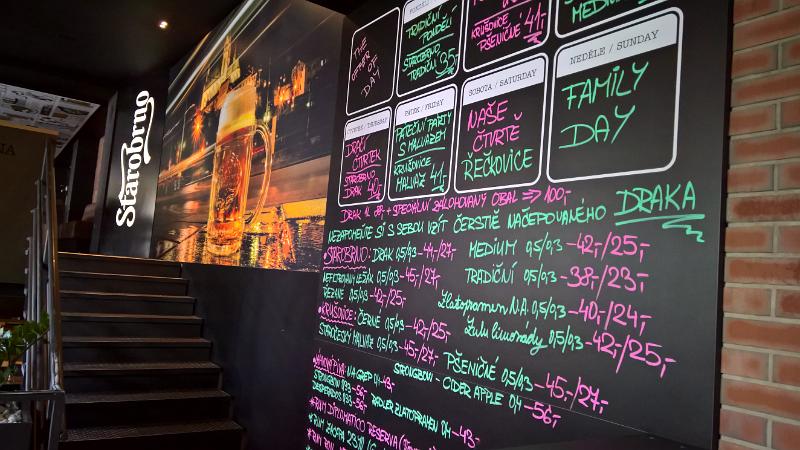 Starobrno
THE
OFFER OF
DAY
PONDĚLÍ
TRADIČNÍ
PONDĚLÍ
STAROBRNO
TRADIČNÍ 35,-
KRUŠOVICE
PŠENIČNÉ 41,-
MEDIUM
ČTVRTEK / THURSDAY
DRAČÍ
ČTVRTEK
STAROBRNO
DRAK 40,-
PÁTEK / FRIDAY
PÁTEČNÍ PARTY
S MALVAZEM
KRUŠOVICE
MALVAZ 41,-
SOBOTA / SATURDAY
NAŠE
ČTVRTĚ
ŘEČKOVICE
NEDĚLE / SUNDAY
FAMILY
DAY
DRAK 1L 88,- + SPECIÁLNÍ ZÁLOHOVANÝ OBAL => 100,-
NEZAPOMEŇTE SI S SEBOU VZÍT ČERSTVĚ NAČEPOVANÉHO DRAKA
STAROBRNO: DRAK 0,5/0,3 -44,-/27,- MEDIUM 0,5/0,3 -42,-/25,-
NEFILTROVANÝ LEŽÁK 0,5/0,3 -45,-/27,- TRADIČNÍ 0,5/0,3 -38,-/23,-
ŘEZANÉ 0,5/0,3 -42,-/25,- Zlatopramen N.A. 0,5/0,3 -40,-/24,-
KRUŠOVICE: ČERNÉ 0,5/0,3 -42,-/25,- Zulu limonády 0,5/0,3 -42,-/25,-
STAROČESKÝ MALVAZ 0,5/0,3 -45,-/27,- PŠENIČNÉ 0,5/0,3 -45,-/27,-
NA GREP 0,4 -43,- STRONGBOW - CIDER APPLE 0,4 -56,-
STRONGBOW 0,33 -56,- RADLER ZLATOPRAMEN 0,4 -43,-
DESPERADOS 0,33 -56,-
*RUM DIPLOMATICO RESERVA
*RUM ZACAPA 23
*RUM